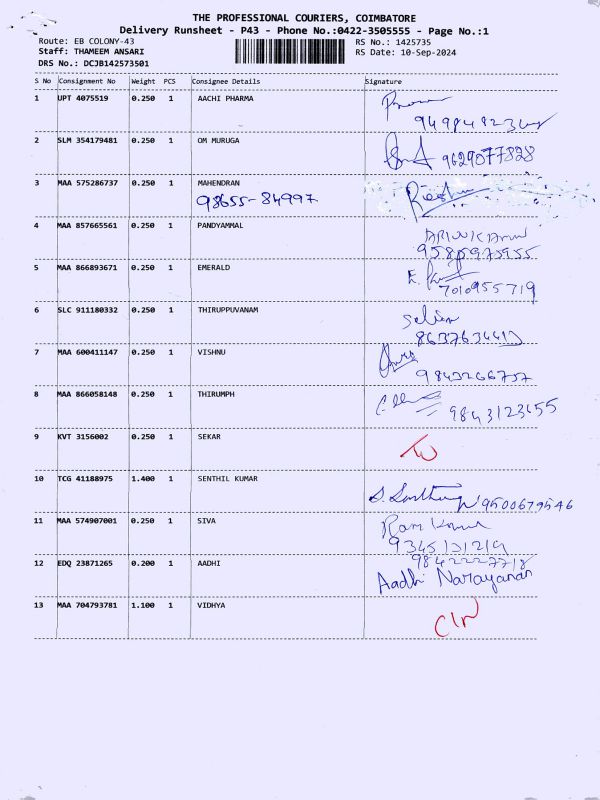 THE PROFESSIONAL COURIERS, COIMBATORE
Delivery Runsheet - P43 - Phone No.:0422-3505555 - Page No.:1
Route: EB COLONY-43 RS No.: 1425735
Staff: THAMEEM ANSARI RS Date: 10-Sep-2024
DRS No.: DCJB142573501
S No Consignment No Weight PCS Consignee Details Signature
1 UPT 4075519 0.250 1 AACHI PHARMA
2 SLM 354179481 0.250 1 OM MURUGA 9629077828
3 MAA 575286737 0.250 1 MAHENDRAN
98655-84997
4 MAA 857665561 0.250 1 PANDYAMMAL
9585975955
5 MAA 866893671 0.250 1 EMERALD
7010955719
6 SLC 911180332 0.250 1 THIRUPPUVANAM
7 MAA 600411147 0.250 1 VISHNU
9843266757
8 MAA 866058148 0.250 1 THIRUMPH
9843123455
9 KVT 3156002 0.250 1 SEKAR
10 TCG 41188975 1.400 1 SENTHIL KUMAR
9500679546
11 MAA 574907001 0.250 1 SIVA Ram Kumar
9345131219
12 EDQ 23871265 0.200 1 AADHI 9842227718
Aadhi Narayanan
13 MAA 704793781 1.100 1 VIDHYA